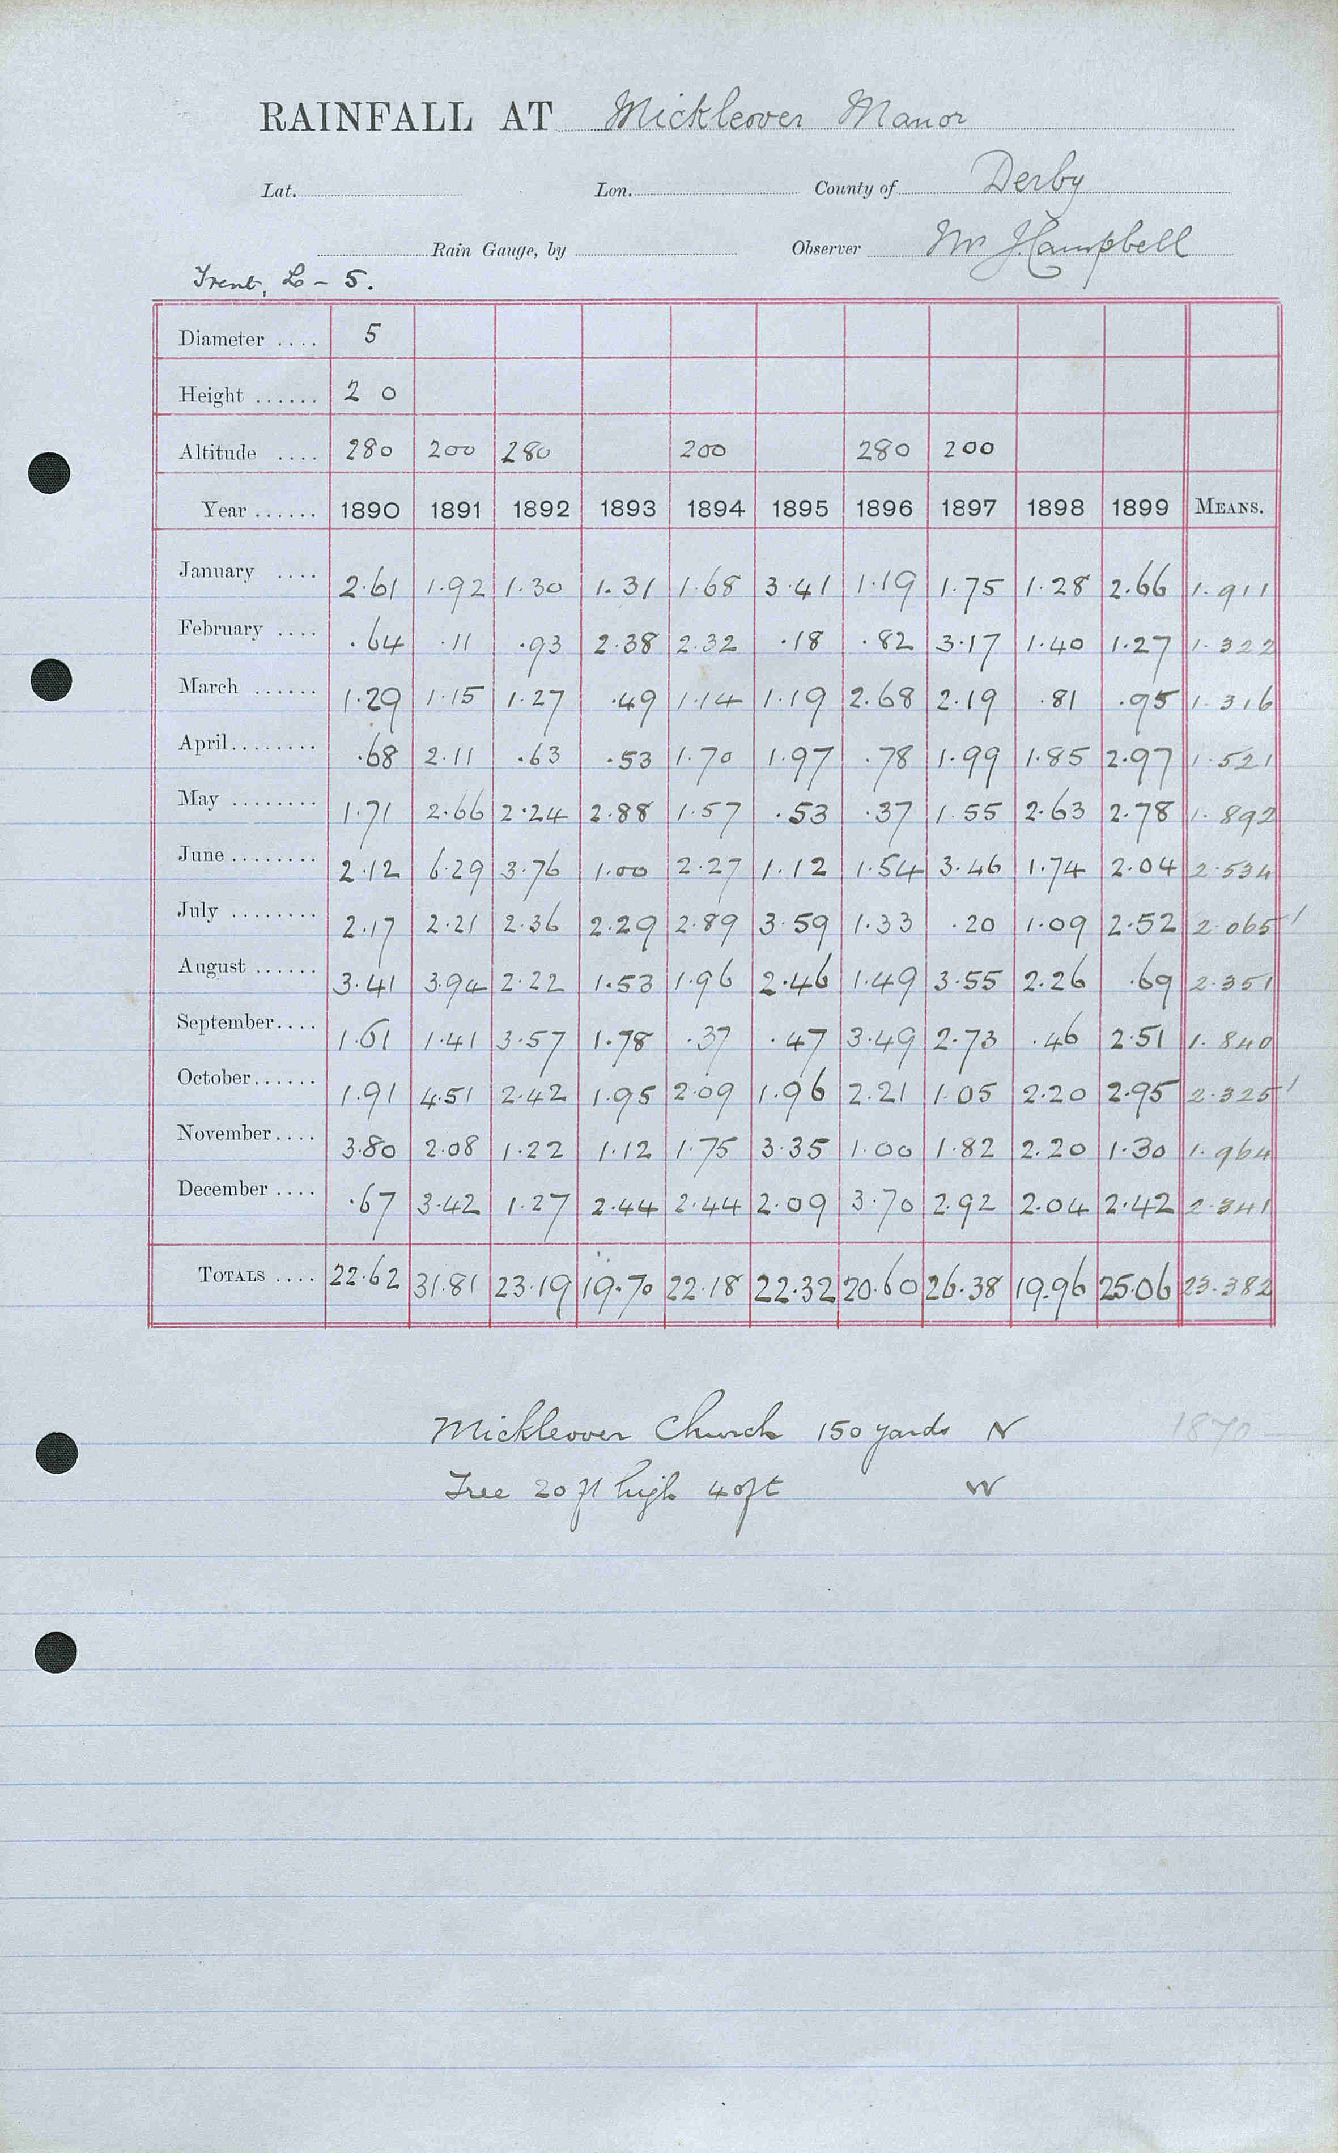 RAINFALL AT Mickleover Manor
Lat. Lon. County of Derby
Rain Gauge, by Observer Mr J. Campbell
Trent, L - 5.
Diameter .... 5
Height ...... 2 0
Altitude .... 280 200 280 200 280 200
Year ...... 1890 1891 1892 1893 1894 1895 1896 1897 1898 1899 MEANS.
January .... 2.61 1.92 1.30 1.31 1.68 3.41 1.19 1.75 1.28 2.66 1.911
February .... .64 .11 .93 2.38 2.32 .18 .82 3.17 1.40 1.27 1.322
March ...... 1.29 1.15 1.27 .49 1.14 1.19 2.68 2.19 .81 .95 1.316
April........ .68 2.11 .63 .53 1.70 1.97 .78 1.99 1.85 2.97 1.521
May ........ 1.71 2.66 2.24 2.88 1.57 .53 .37 1.55 2.63 2.78 1.892
June........ 2.12 6.29 3.76 1.00 2.27 1.12 1.54 3.46 1.74 2.04 2.534
July ........ 2.17 2.21 2.36 2.29 2.89 3.59 1.33 .20 1.09 2.52 2.065 /
August ...... 3.41 3.94 2.22 1.53 1.96 2.46 1.49 3.55 2.26 .69 2.351
September.... 1.61 1.41 3.57 1.78 .37 .47 3.49 2.73 .46 2.51 1.840
October...... 1.91 4.51 2.42 1.95 2.09 1.96 2.21 1.05 2.20 2.95 2.325 /
November.... 3.80 2.08 1.22 1.12 1.75 3.35 1.00 1.82 2.20 1.30 1.964
December .... .67 3.42 1.27 2.44 2.44 2.09 3.70 2.92 2.04 2.42 2.341
TOTALS .... 22.62 31.81 23.19 19.70 22.18 22.32 20.60 26.38 19.96 25.06 23.382
Mickleover Church 150 yards N 1870
Tree 20 ft high 40ft W